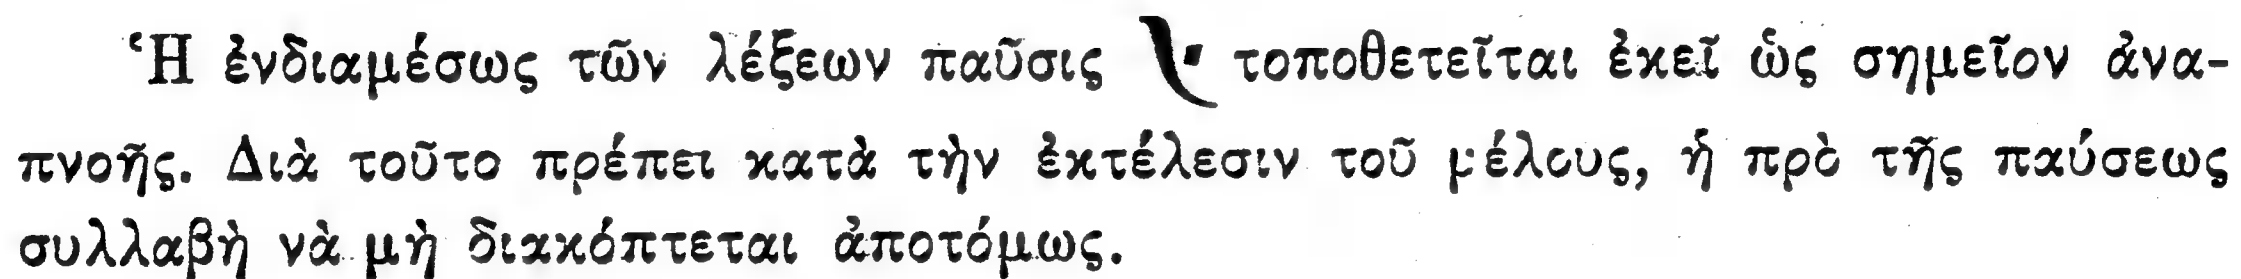 Ἡ ἐνδιαμέσως τῶν λέξεων παῦσις τοποθετεῖται ἐκεῖ ὡς σημεῖον ἀνα-
πνοῆς. Διὰ τοῦτο πρέπει κατὰ τὴν ἐκτέλεσιν τοῦ μέλους, ἡ πρὸ τῆς παύσεως
συλλαβὴ νὰ μὴ διακόπτεται ἀποτόμως.